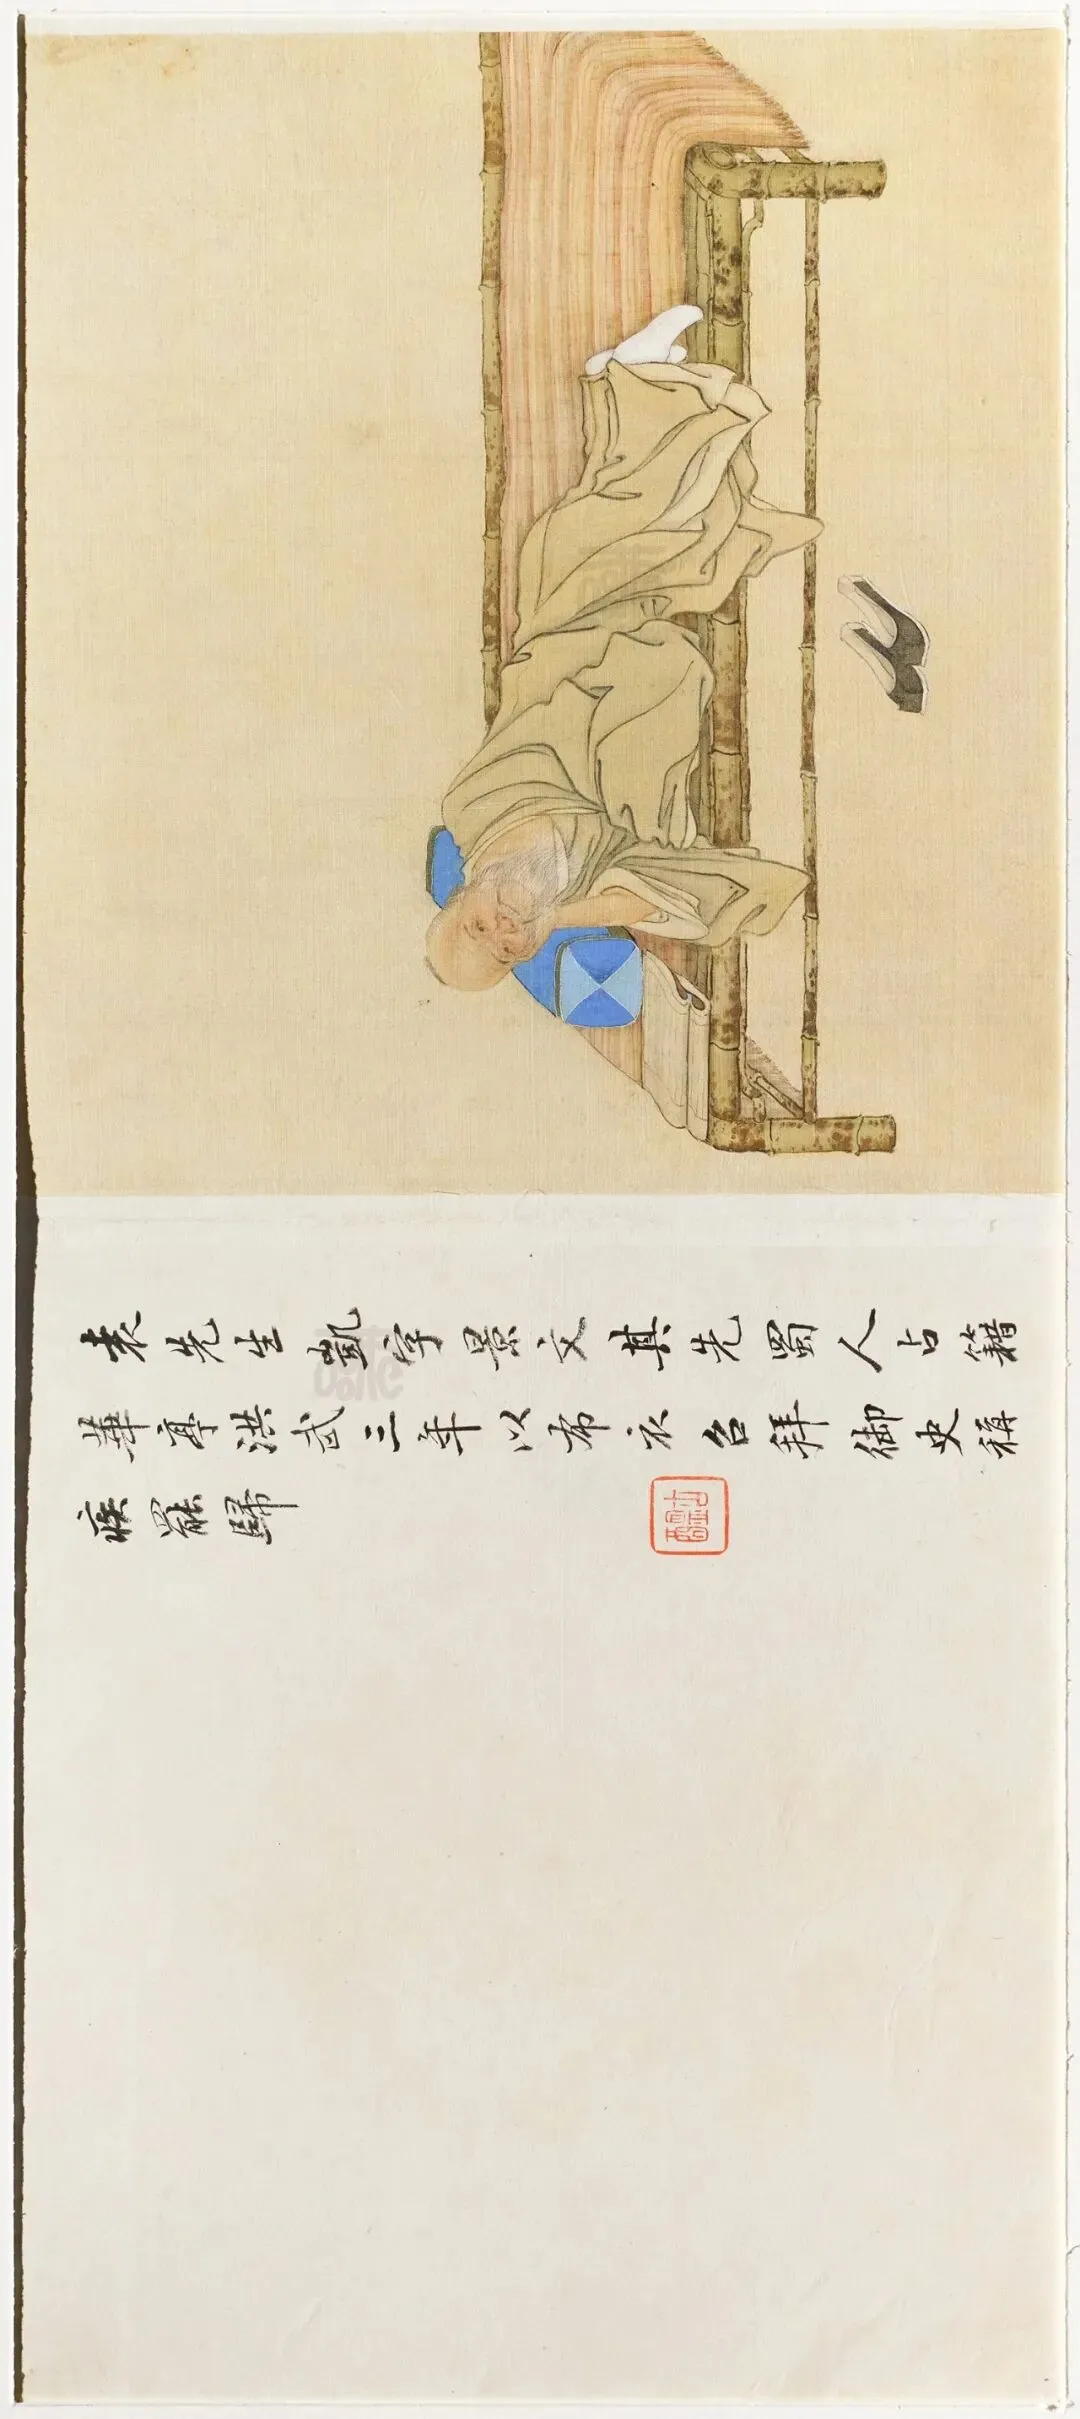 袁先生凱字景文其先蜀人占籍
華亭洪武三年以布衣召拜御史稱
疾罷歸